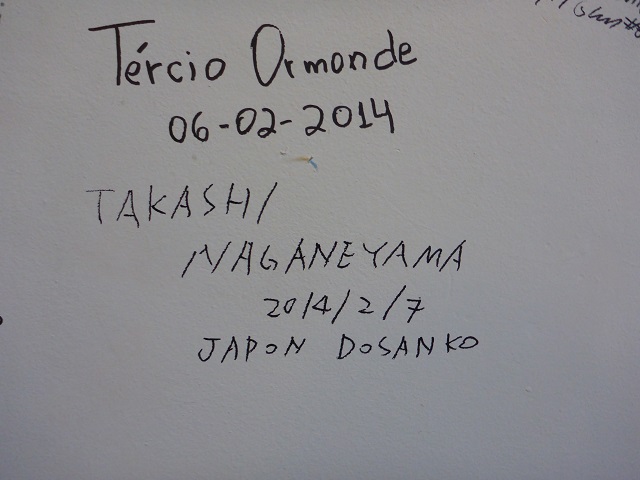 Tércio Ormonde
06-02-2014
TAKASHI
NAGANEYAMA
2014/2/7
JAPON DOSANKO